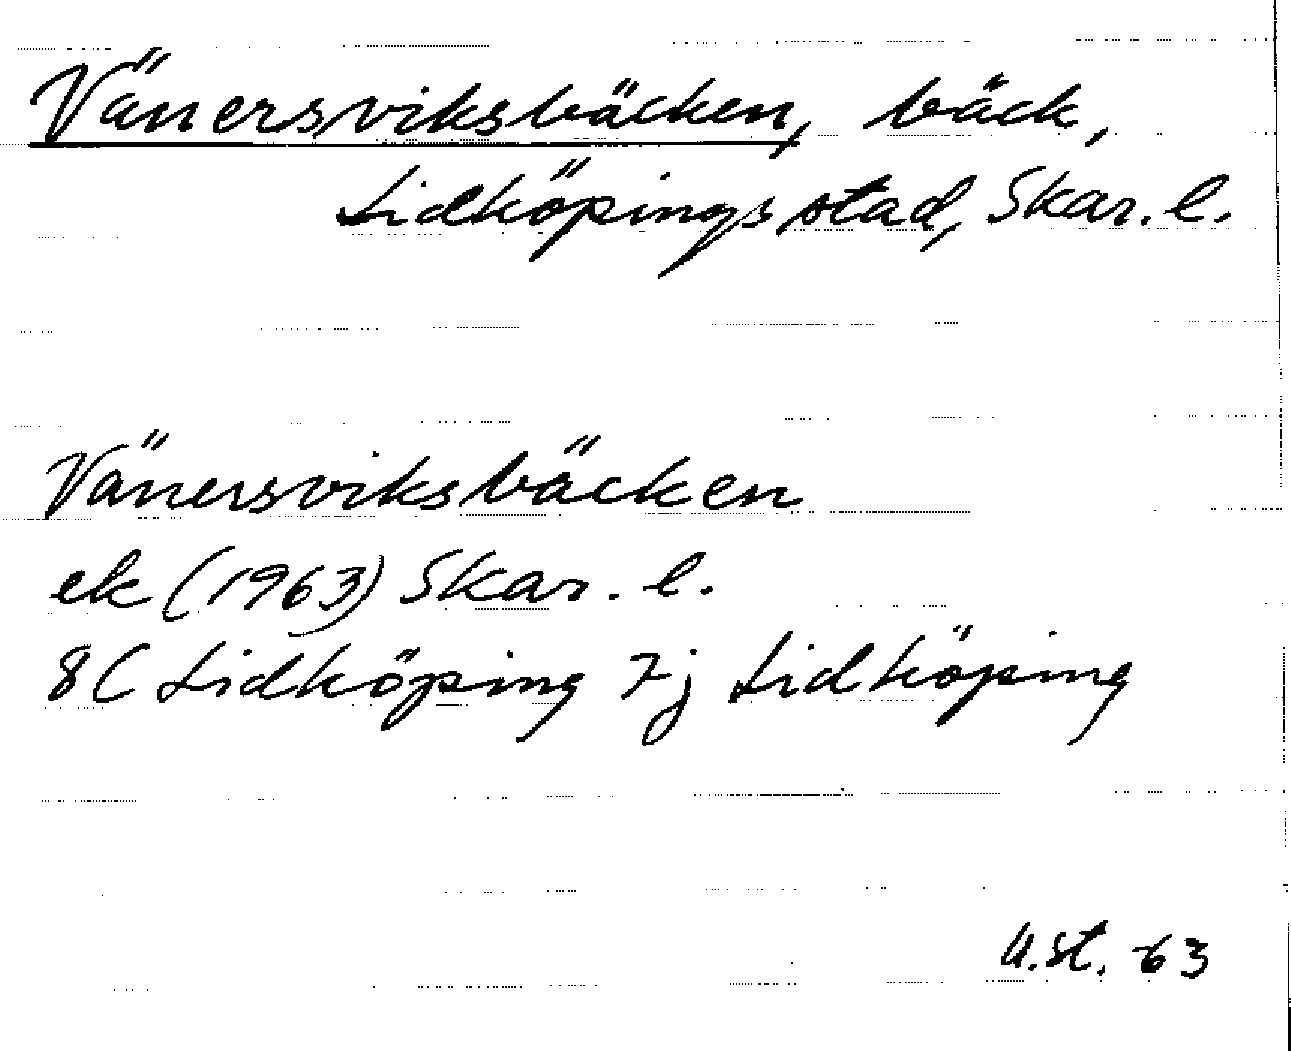 Vänersviksbäcken, bäck,
Lidköpings stad, Skar. l.
Vänersviksbäcken
ek (1963) Skar. l.
8C Lidköping 7j Lidköping
U.St. 63